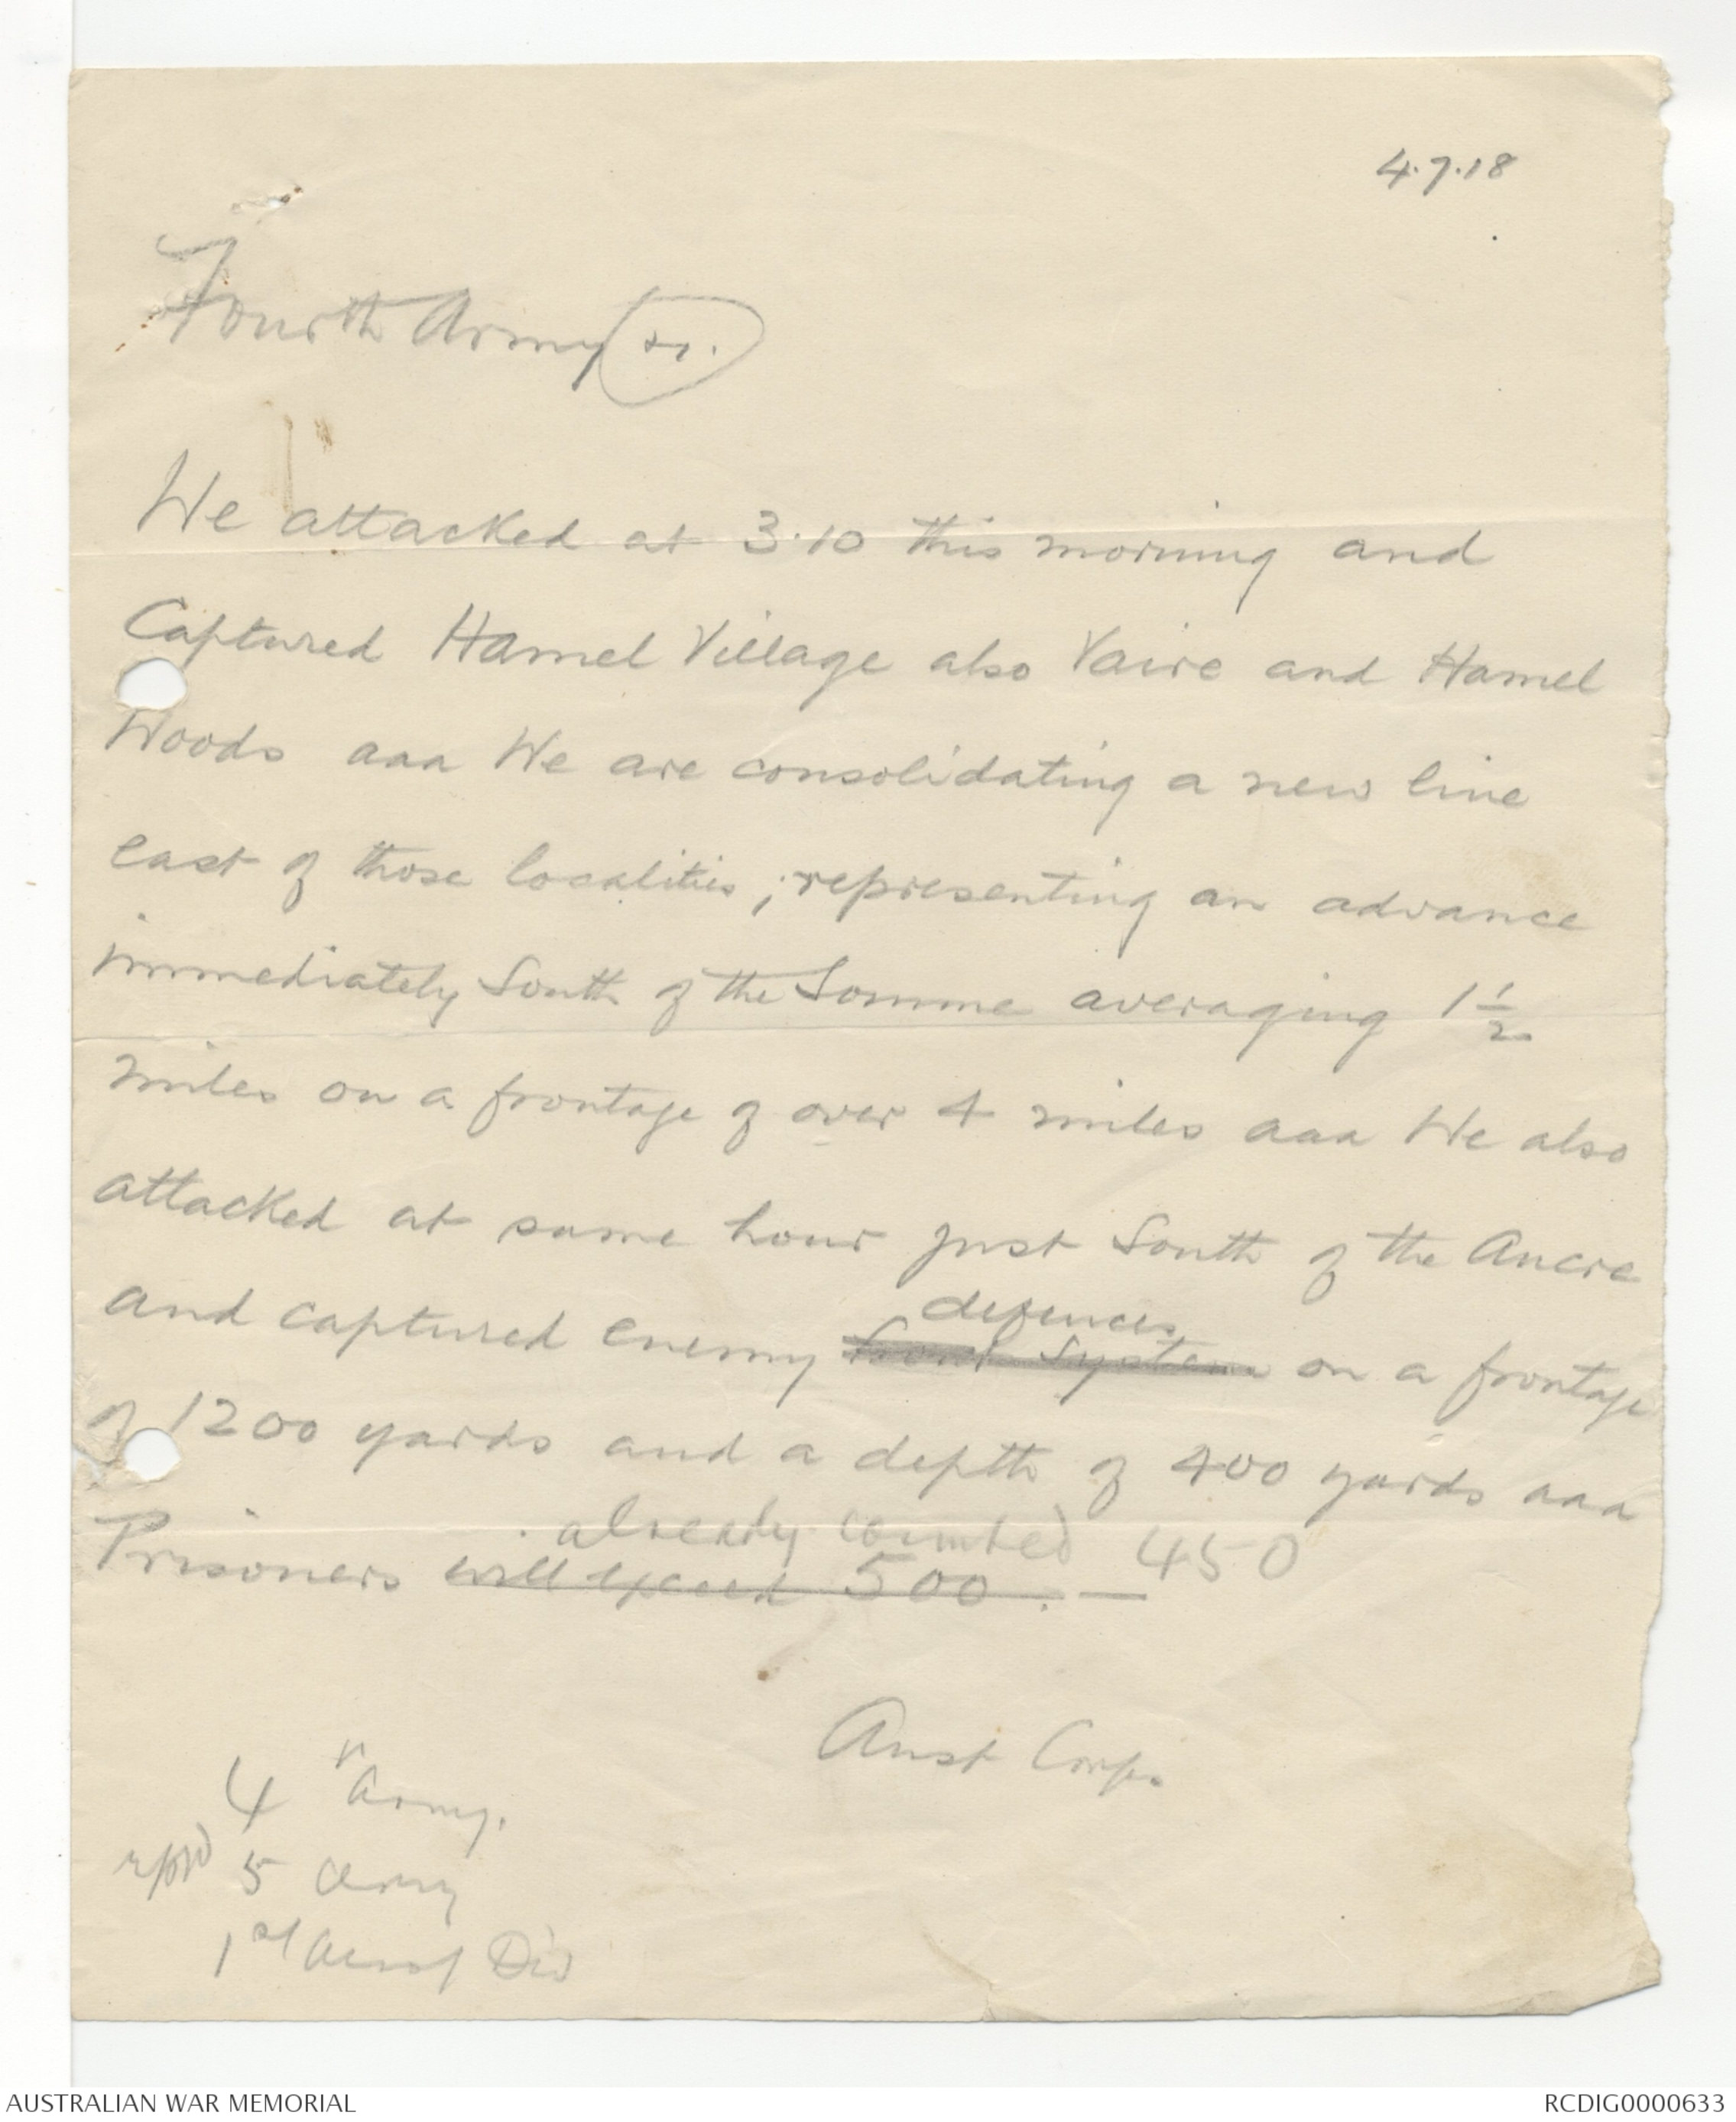 4.7.18
Fourth Army
We attacked at 3.10 this morning and
Captured Hamel Village also Vaire and Hamel
Woods aaa We are consolidating a new line
east of those localities, representing an advance
immediately South of the Somme averaging 1½
miles on a frontage of over 4 miles aaa We also
attacked at same hour just South of the Ancre
defences
and captured enemy front system on a frontage
of 1200 yards and a depth of 400 yards aaa
already counted 450
Prisoners will exceed 500. —
Aust Corps
4 Army.
5 Army
1st Aust Div
AUSTRALIAN WAR MEMORIAL
RCDIG0000633